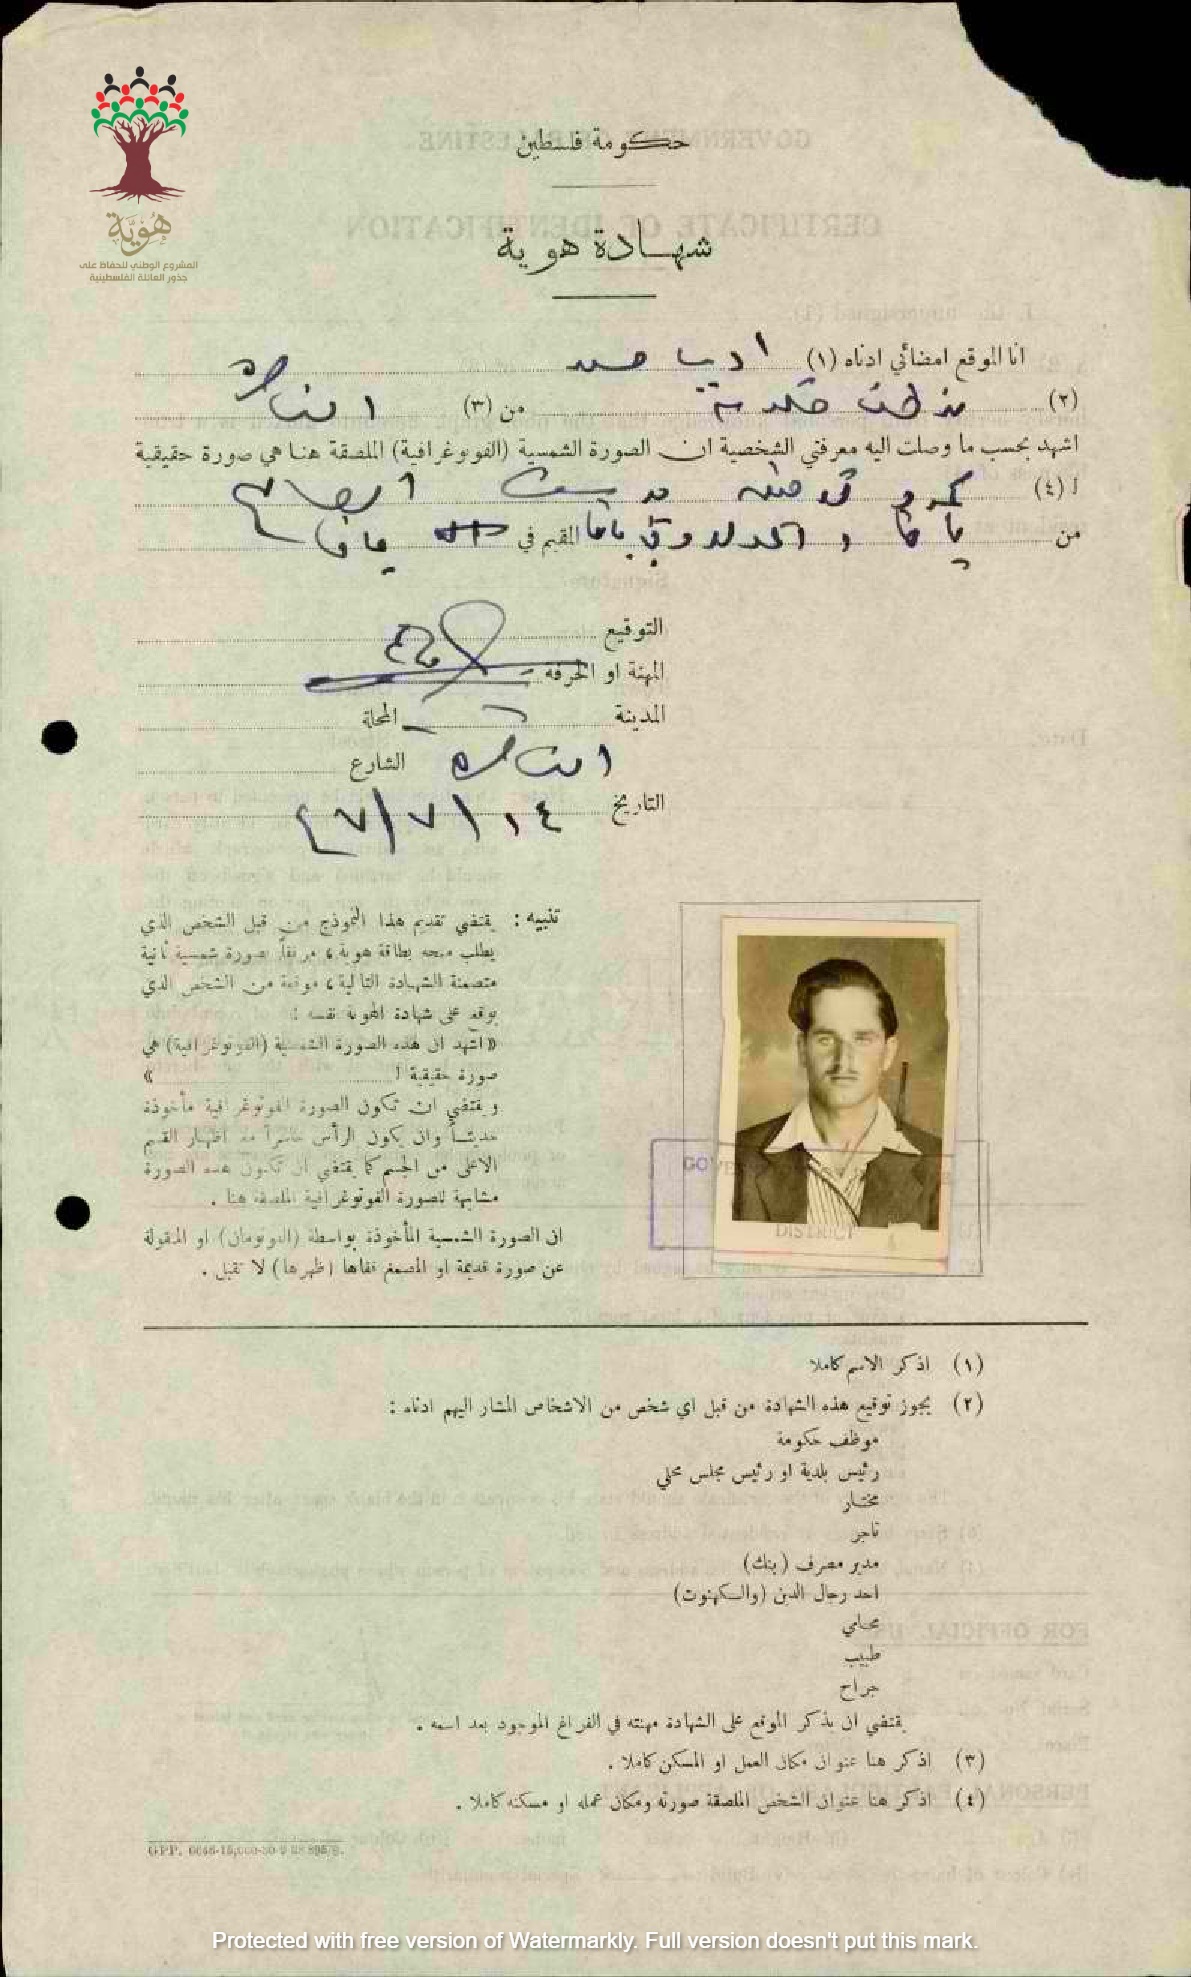 هُوِيَّة
المشروع الوطني للحفاظ على
جذور العائلة الفلسطينية
حكومة فلسطين
شهادة هوية
انا الموقع امضائي ادناه (١) اديب
(٢) موظف حكومة من (٣) الناصرة
اشهد بحسب ما وصلت اليه معرفتي الشخصية ان الصورة الشمسية (الفوتوغرافية) الملصقة هنا هي صورة حقيقية
لـ (٤)
من يافا و المولود في يافا المقيم في يافا
التوقيع
المهنة او الحرفة
المدينة المحلة
الناصرة الشارع
التاريخ ١٤/٧/٤٧
تنبيه : يقتضي تقديم هذا النموذج من قبل الشخص الذي
يطلب منحه بطاقة هوية، مرفقاً بصورة شمسية ثانية
متضمنة الشهادة التالية، موقعة من الشخص الذي
يوقع على شهادة الهوية نفسه :
«اشهد ان هذه الصورة الشمسية (الفوتوغرافية) هي
صورة حقيقية لـ »
ويقتضي ان تكون الصورة الفوتوغرافية مأخوذة
حديثاً وان يكون الرأس حاسراً مع اظهار القسم
الاعلى من الجسم كما يقتضي ان تكون هذه الصورة
مشابهة للصورة الفوتوغرافية الملصقة هنا .
ان الصورة الشمسية المأخوذة بواسطة (الفوتومان) او المنقولة
عن صورة قديمة او المصمغ قفاها (ظهرها) لا تقبل .
DISTRICT
(١) اذكر الاسم كاملا
(٢) يجوز توقيع هذه الشهادة من قبل اي شخص من الاشخاص المشار اليهم ادناه :
موظف حكومة
رئيس بلدية او رئيس مجلس محلي
مختار
تاجر
مدير مصرف (بنك)
احد رجال الدين (والكهنوت)
محامي
طبيب
جراح
يقتضي ان يذكر الموقع على الشهادة مهنته في الفراغ الموجود بعد اسمه .
(٣) اذكر هنا عنوان مكان العمل او المسكن كاملا .
(٤) اذكر هنا عنوان الشخص الملصقة صورته ومكان عمله او مسكنه كاملا .
Protected with free version of Watermarkly. Full version doesn't put this mark.